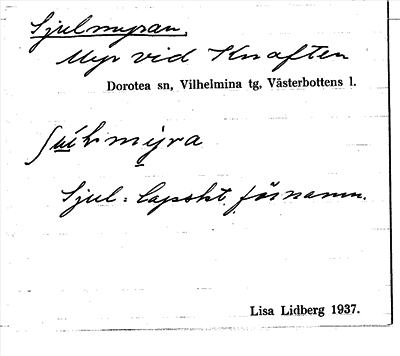 Sjulmyran,
Myr vid Knaften
Dorotea sn, Vilhelmina tg, Västerbottens l.
myra
Sjul = lapskt förnamn.
Lisa Lidberg 1937.